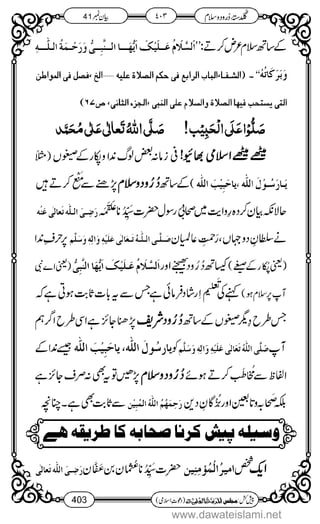 گلدستۂ درود و سلام ٤٠٣ بیان نمبر 41
کے ساتھ سلام عرض کرتے: ’’اَلسَّلَامُ عَلَیْکَ اَیُّہَا النَّبِیُّ وَرَحْمَۃُ اللہِ
وَبَرَکَاتُہُ‘‘۔ (الشفاء، الباب الرابع فی حکم الصلاۃ علیہ ــــ الخ، فصل فی المواطن
التی یستحب فیھا الصلاۃ والسلام علی النبی، الجزء الثانی، ص٦٧)
صَلُّوْا عَلَی الْحَبِیْب! صَلَّی اللہُ تَعَالٰی عَلٰی مُحَمَّد
میٹھے میٹھے اسلامی بھائیو! فی زمانہ بعض لوگ ندا وپکار کے صیغوں (مثلاً
یَارَسُوْلَ اللہ، یاحَبِیْبَ اللہ) کے ساتھ دُرُود وسلام پڑھنے سے مَنْع کرتے ہیں
حالانکہ بیان کردہ روایت میں صحابیٔ رسول حضرت سیِّدُنا عَلْقَمَہ رَضِیَ اللہُ تَعَالٰی عَنْہُ
نے سلطانِ دوجہاں، رَحمتِ عالمیان صَلَّی اللہُ تَعَالٰی عَلَیْہِ وَاٰلِہٖ وَسَلَّم پر حرفِ ندا
(یعنی پکار کے صیغے) کے ساتھ دُرُود بھیجنے اور اَلسَّلَامُ عَلَیْکَ اَیُّہَا النَّبِیُّ (یعنی اے نبی
آپ پر سلام ہو) کہنے کی تعلیم ارشاد فرمائی ہے جس سے یہ بات ثابت ہوتی ہے کہ
جس طرح دیگر صیغوں کے ساتھ دُرُودِ شریف پڑھنا جائز ہے اسی طرح اگر ہم
آپ صَلَّی اللہُ تَعَالٰی عَلَیْہِ وَاٰلِہٖ وَسَلَّم کو یارسُولَ اللہ، یاحَبِیْبَ اللہ جیسے ندا کے
الفاظ سے مُخاطَب کرتے ہوئے دُرُود وسلام پڑھیں تو یہ بھی نہ صرف جائز ہے
بلکہ صحابہ وتابعین اور بُزُرگانِ دین رَحِمَہُمُ اللہُ الْمُبِیْن سے ثابت بھی ہے۔ چنانچہ
وسیلہ پیش کرنا صحابہ کا طریقہ ہے
ایک شخص امیرُ الْمُؤمِنِیْن حضرت سیِّدُنا عثمان بن عَفَّان رَضِیَ اللہُ تَعَالٰی
403 (دعوتِ اسلامی)
www.dawateislami.net